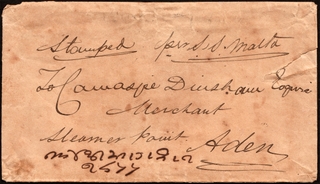 Stamped per S.S. Malta
To Cawasjee Dinshaw Esquire
Merchant
Steamer Point Aden